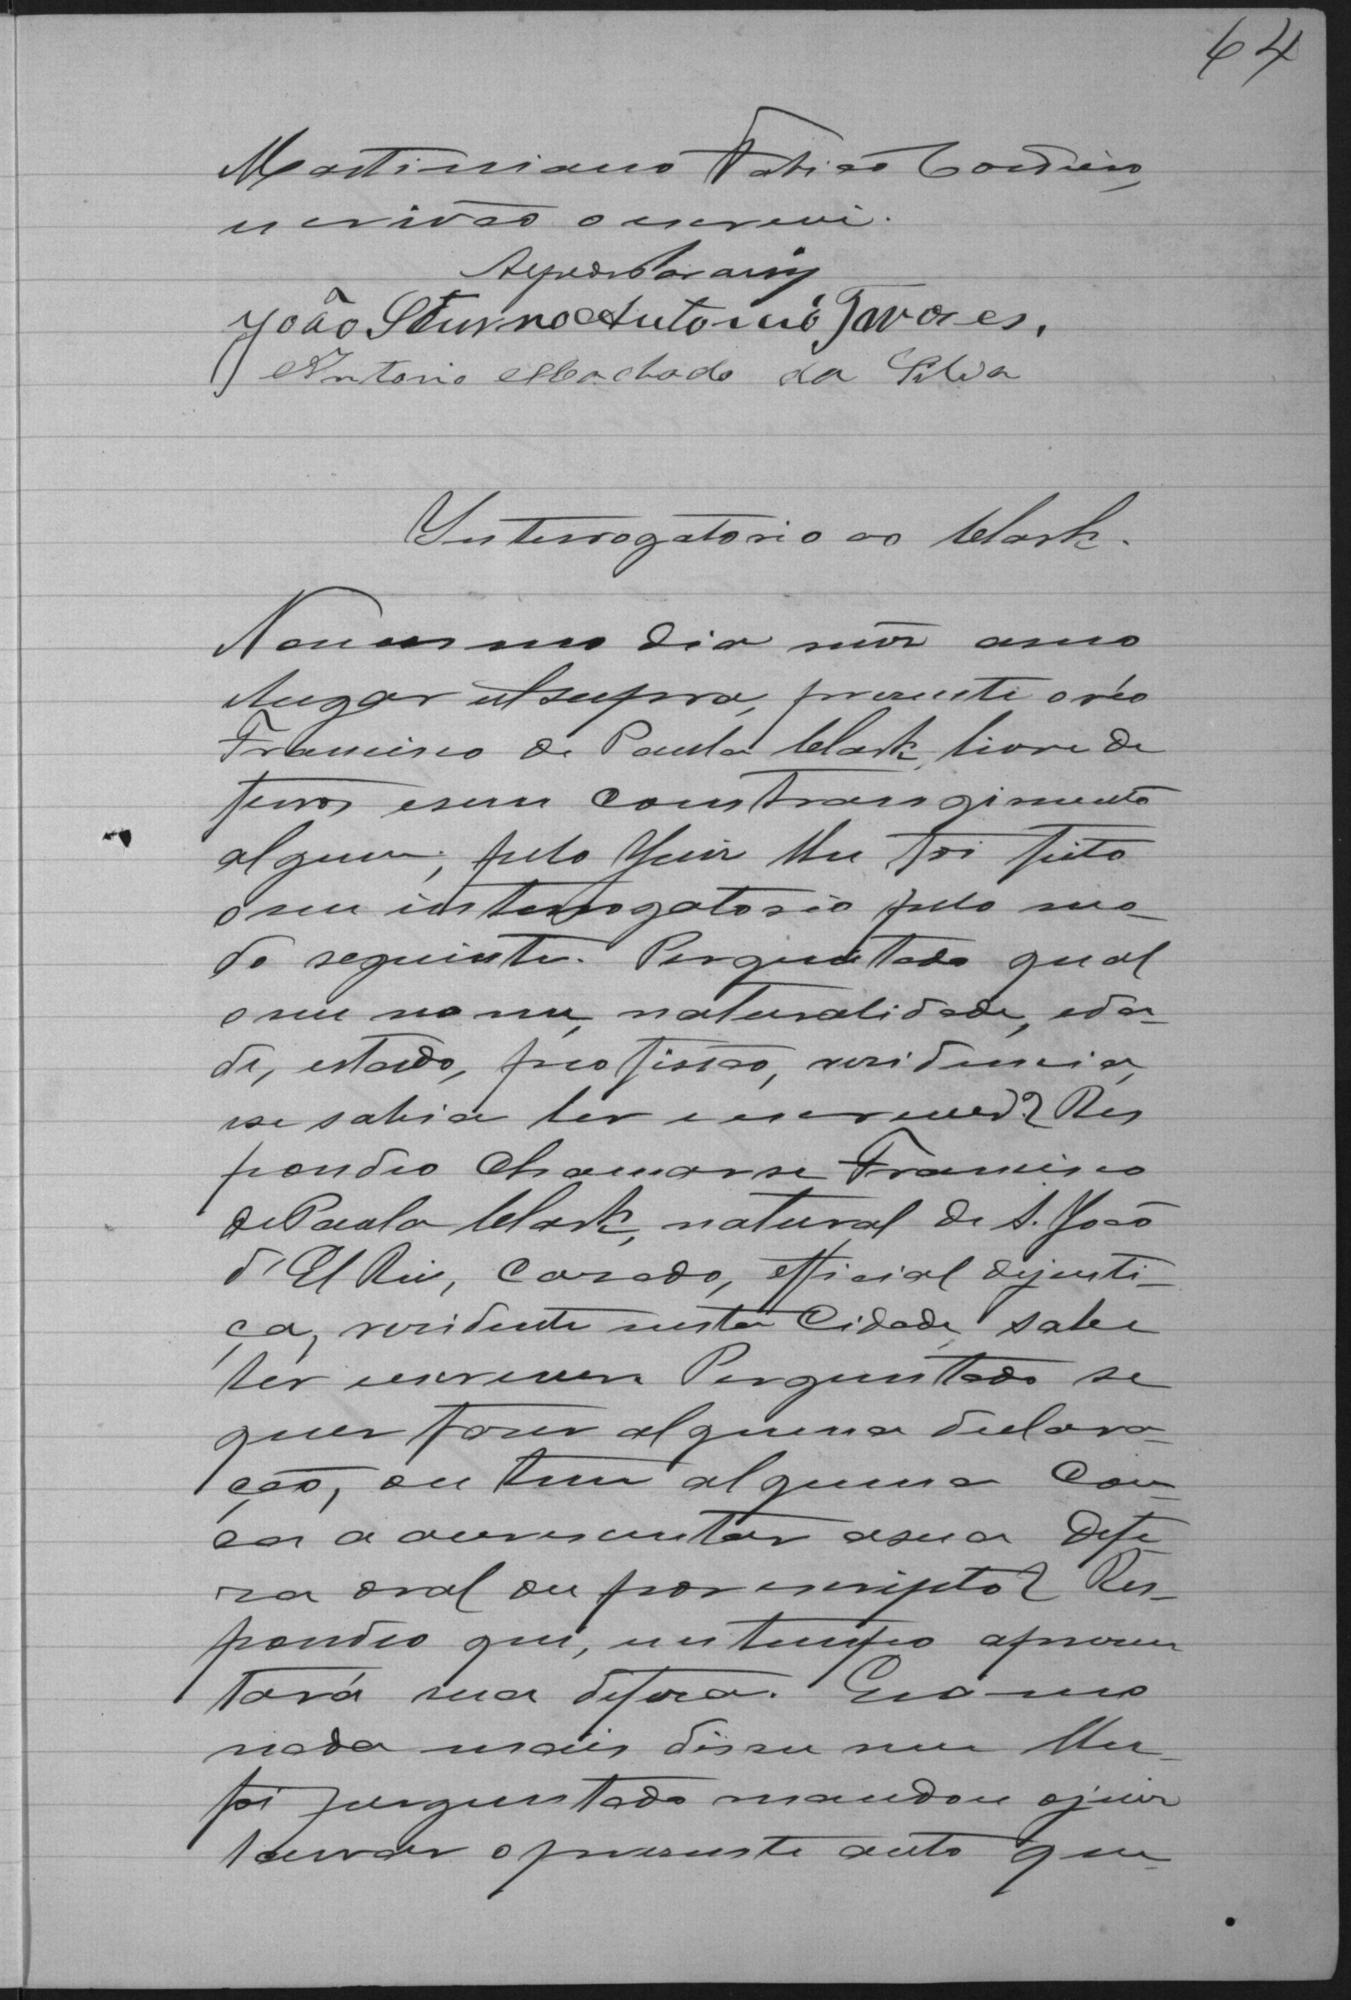 64
Martiniano Fabião Cordeiro,
escrivão o escrevi.
João Sturno Antonio Tavares.
Antonio Machado da Silva
Interrogatorio ao Clark.
No mesmo dia mez anno
lugar ut supra, presente o réo
Francisco de Paula Clark, livre de
ferros e sem constrangimento
algum, pelo Juiz lhe foi feito
o seu interrogatorio pelo mo-
do seguinte. Perguntado qual
o seu nome, naturalidade, eda-
de, estado, profissão, residencia,
e se sabia ler e escrever? Res
pondeo chamar-se Francisco
de Paula Clark, natural de S. João
d'El Rei, casado, official de justi-
ça, residente nesta Cidade, sabe
ler escrever. Perguntado se
quer fazer alguma declara-
ção, ou tem alguma cou-
sa a accrescentar a sua defe
za oral ou por escripto? Res-
pondeo que, em tempo apresen
tará sua defeza. E como
nada mais disse nem lhe
foi perguntado mandou o juiz
lavrar o presente auto que